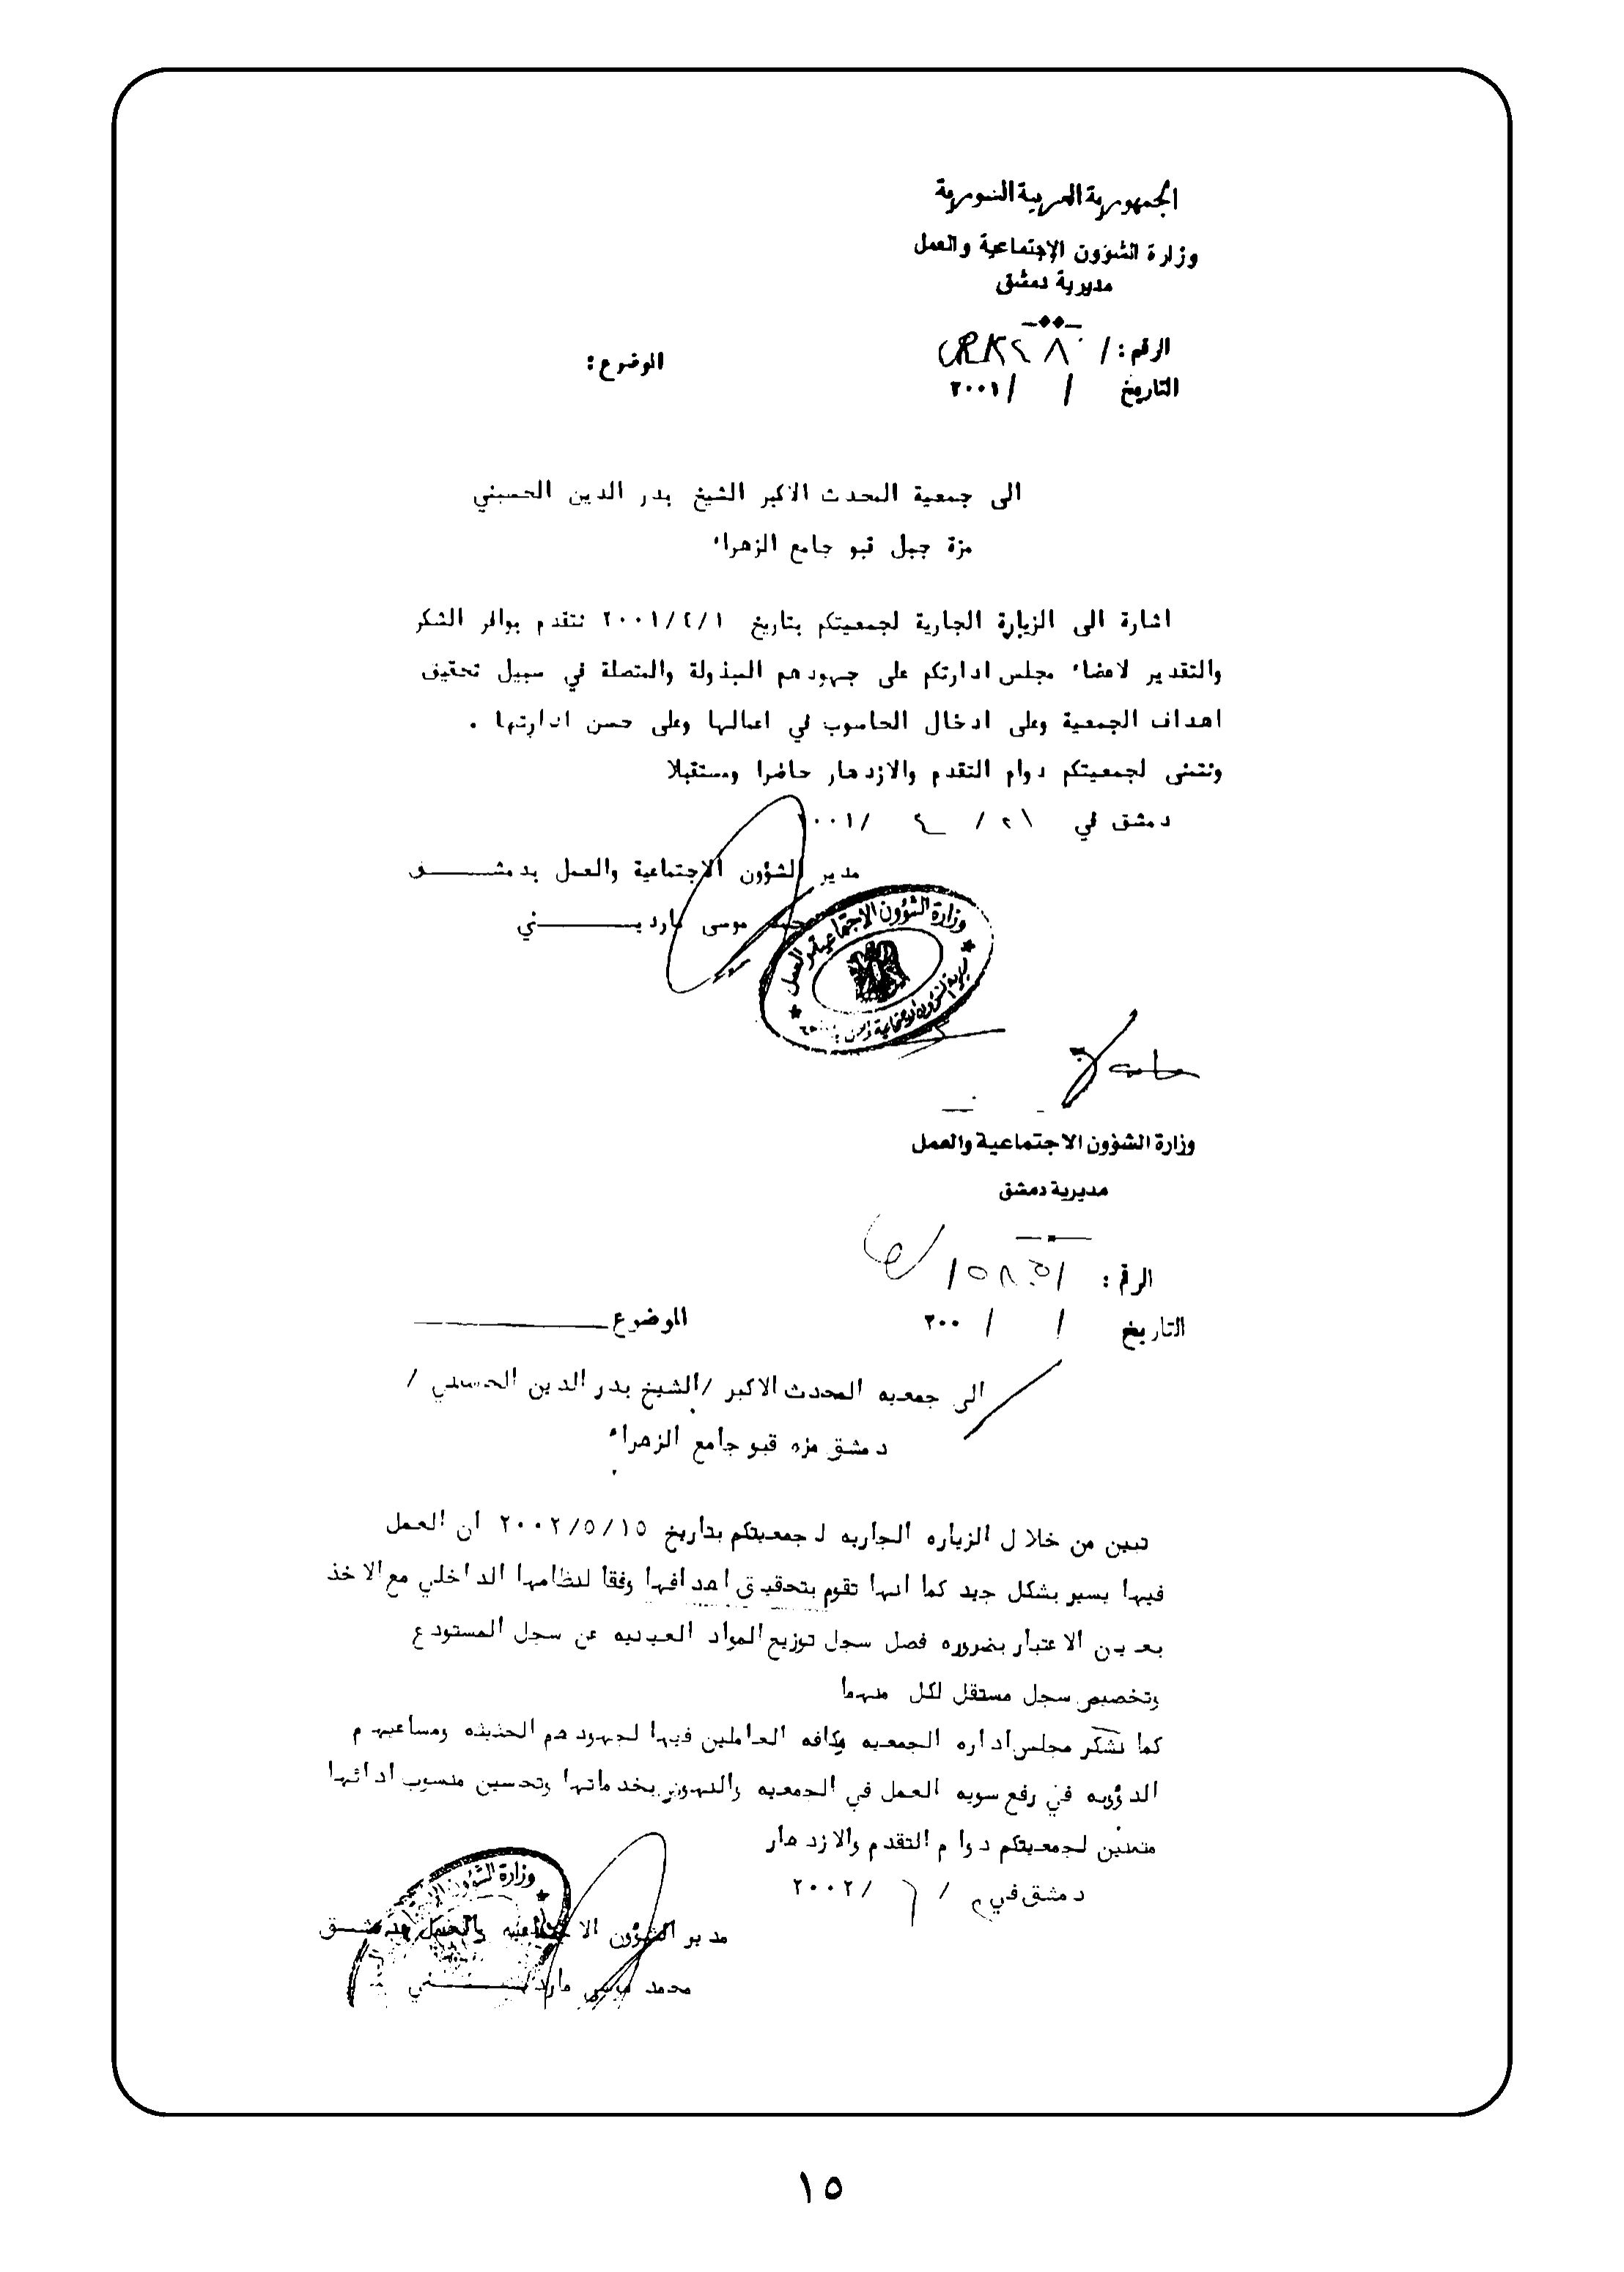 الجمهورية العربية السورية
وزارة الشؤون الإجتماعية والعمل
مديرية دمشق
الرقم: /
الموضوع:
التاريخ / / ٢٠٠١
الى جمعية المحدث الاكبر الشيخ بدر الدين الحسيني
مزة جبل قبو جامع الزهراء
اشارة الى الزيارة الجارية لجمعيتكم بتاريخ ٢٠٠١/٤/١ نتقدم بوافر الشكر
والتقدير لاعضاء مجلس ادارتكم على جهودهم المبذولة والمتصلة في سبيل تحقيق
اهداف الجمعية وعلى ادخال الحاسوب في اعمالها وعلى حسن ادارتها .
ونتمنى لجمعيتكم دوام التقدم والازدهار حاضرا ومستقبلا
دمشق في ٢١ / ٤ / ٢٠٠١
مدير الشؤون الاجتماعية والعمل بدمشــــــق
محمد موسى مارديــــــــني
وزارة الشؤون الإجتماعية والعمل
وزارة الشؤون الاجتماعية والعمل
مديرية دمشق
الرقم: /
التاريخ / / ٢٠٠
الموضوع
الى جمعيه المحدث الاكبر /الشيخ بدر الدين الحسيني /
دمشق مزه قبو جامع الزهراء
تبين من خلال الزياره الجاريه لجمعيتكم بتاريخ ٢٠٠٢/٥/١٥ ان العمل
فيها يسير بشكل جيد كما انها تقوم بتحقيق اهدافها وفقا لنظامها الداخلي مع الاخذ
بعين الاعتبار بضروره فصل سجل توزيع المواد العينيه عن سجل المستودع
وتخصيص سجل مستقل لكل منهما
كما نشكر مجلس اداره الجمعيه وكافه العاملين فيها لجهودهم الحثيثه ومساعيهم
الدؤوبه في رفع سويه العمل في الجمعيه والنهوض بخدماتها وتحسين منسوب ادائها
متمنين لجمعيتكم دوام التقدم والازدهار
دمشق في / ٦ / ٢٠٠٢
مدير الشؤون الاجتماعيه والعمل بدمشــق
محمد موسى مارديــــــــني
١٥